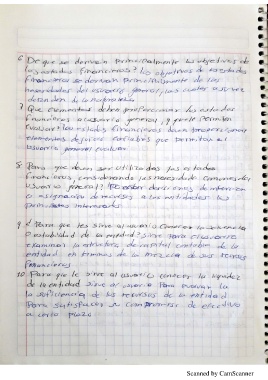 6 De que se derivan principalmente los objetivos de
los estados financieros? Los objetivos de los estados
financieros se derivan principalmente de las
necesidades del usuario general, las cuales a su vez
dependen de la naturaleza
7 Que elementos deben proporcionar los estados
financieros al usuario general, y que le permiten
evaluar? los estados financieros deben proporcionar
elementos de juicio confiables que permitan al
usuario general evaluar
8 Para que deben ser utilizados los estados
financieros, considerando las necesidades comunes del
usuario general? tomar decisiones de inversion
o asignacion de recursos a las entidades
9 ¿Para que les sirve al usuario conocer la solvencia
o estabilidad de la entidad? sirve para el usuario
examinar la estructura de capital contable de la
entidad en terminos de la mezcla de sus recursos
financieros
10 Para que le sirve al usuario conocer la liquidez
de la entidad sirve al usuario para evaluar la
la suficiencia de los recursos de la entidad
Para satisfacer sus compromisos de efectivo
a corto plazo
Scanned by CamScanner